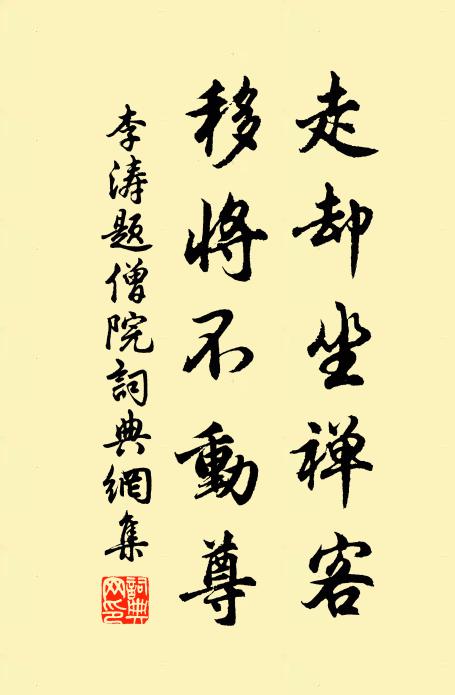 走却坐禅客
移将不動尊
李涛題僧院詞典網集
詞典网印